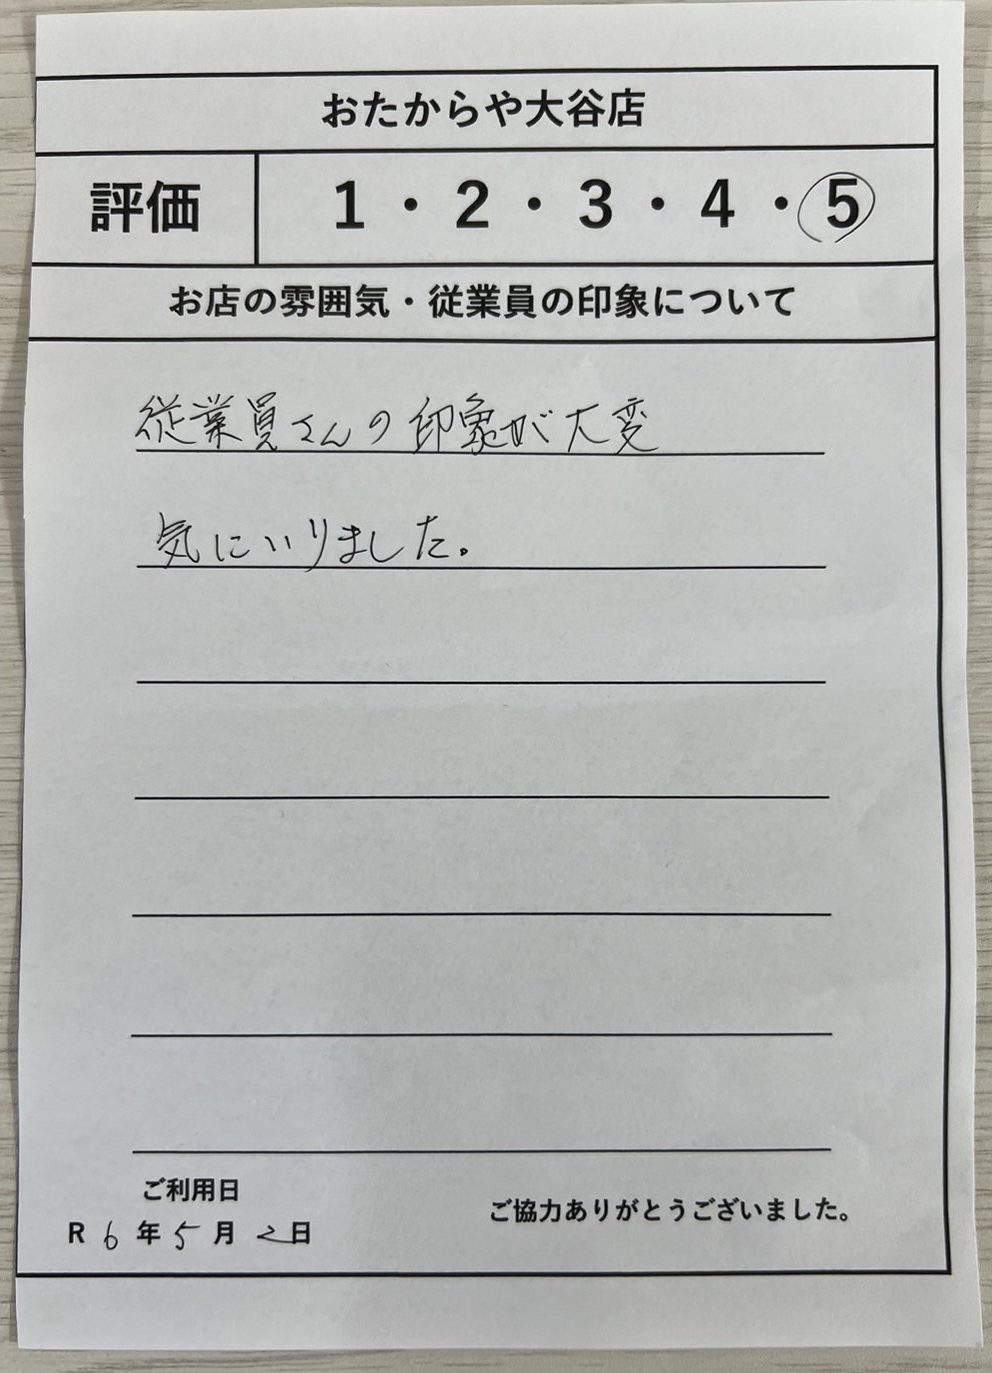 おたからや大谷店
評価 1・2・3・4・5
お店の雰囲気・従業員の印象について
従業員さんの印象が大変
気にいりました。
ご利用日
R 6 年 5 月 2 日
ご協力ありがとうございました。